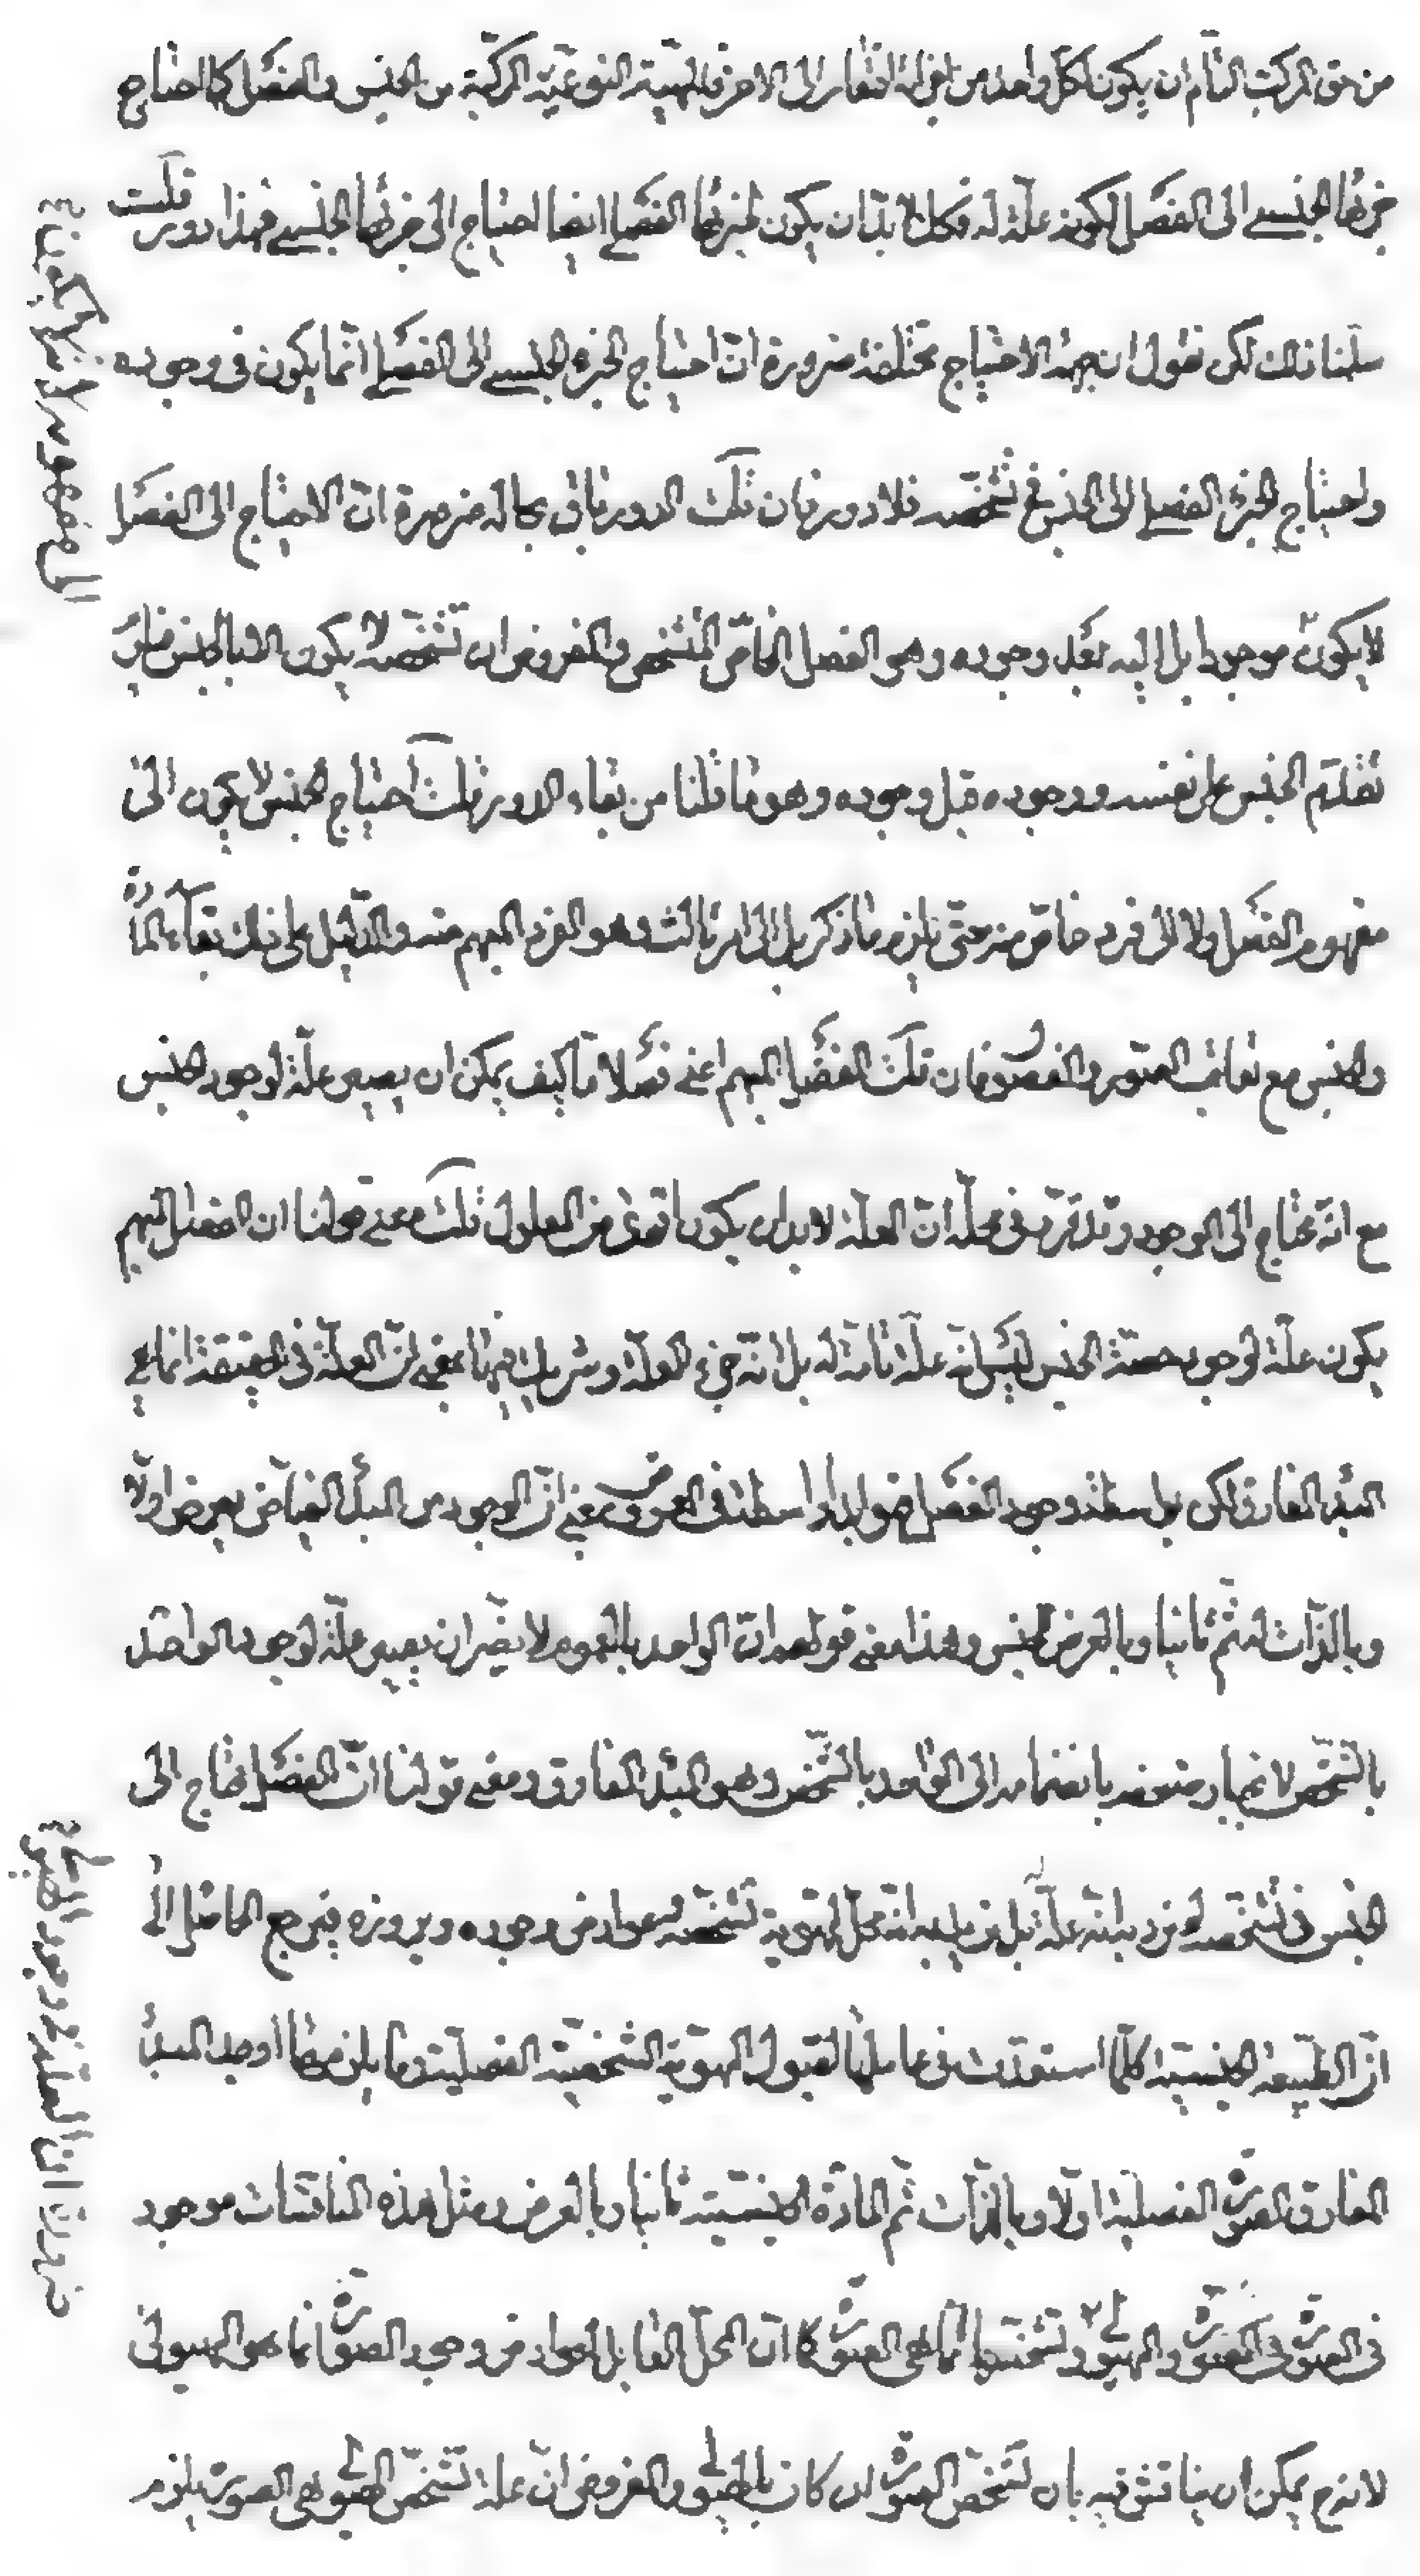 من حق المركب التام ان يكون لكل واحد من اجزائه افتقار الى الاخر فالمهية النوعية المركبة من الجنس والفصل كما احتاج
جزئها الجنسے الى الفصل لكونه علة له فكك لا بد ان يكون لجزئها الفصلے ايضا احتياج الى جزئها الجنسے فهذا دور قلت
سلمنا ذلك لكن نقول ان جهة الاحتياج مختلفة ضرورة ان احتياج الجزء الجنسے الى الفصلے انما يكون فى وجوده
واحتياج الجزء الفصلے الى الجنس فى تشخصه فلا دور فان قلت الدور باق بحاله ضرورة ان الاحتياج الى الفصل
لا يكون موجودا بل اليه بعد وجوده وهو الفصل الخاص المتشخص والمفروض ان تشخصه لا يكون الا بالجنس فلزم
تقدم الجنس على نفسه ووجوده قبل وجوده وهو ما قلنا من بقاء الدور قلت احتياج الجنس لا يكون الى
مفهوم الفصل ولا الى فرد خاص منه حتى يلزم ما ذكر بل الى امر ثالث وهو الفرد المبهم منه والدليل على ذلك بقاء المادة
والجنس مع تعاقب الصور والفصول فان قلت الفصل المبهم اعنے فصلا ما كيف يمكن ان يصير علة لوجود الجنس
مع انه محتاج الى الوجود وقد تقرر فى محله ان العلة لا بد ان يكون اقوى من المعلول قلت معنے قولنا ان الفصل المبهم
يكون علة لوجود حصة الجنس ليس انه علة تامة له بل انه جزء العلة وشريك فيها بمعنے ان العلة فى الحقيقة انما هے
المبدء المفارق لكن بواسطة وجود الفصل فهو اما واسطة فى العروض بمعنے ان الوجود من المبدأ الفياض يعرض اولا
وبالذات له ثم ثانيا وبالعرض للجنس وهذا معنے قولهم ان الواحد بالعموم لا يضير ان يصير علة لوجود الواحد
بالتشخص لانجبار ضعفه بانضمامه الى الواحد بالتشخص وهو المبدء المفارق ومعنے قولنا ان الفصل محتاج الى
الجنس فى تشخصه لم نرد به انه علة بل نريد به انه محل لهوية تشخصه وعوارض وجوده وبروزه فيرجع الحاصل الى
ان الطبيعة الجنسية كلما استعدت فى حاملها لقبول الهوية الشخصية الفصلية وما يلزمها اوجد المبدأ
المفارق الصورة الفصلية اولا وبالذات ثم المادة الجنسية ثانيا وبالعرض ومثل هذه المناقشات موجود
فى الصورة فى الصورة والهيولے وتشخصها انما هى الصورة كما ان المحل القابل لعوارض وجود الصورة انما هو الهيولى
لانه يمكن ان يناقش فيه بان تشخص الصورة ان كان بالهيولے والمفروض ان علة تشخص الهيولے هى الصورة يلزم